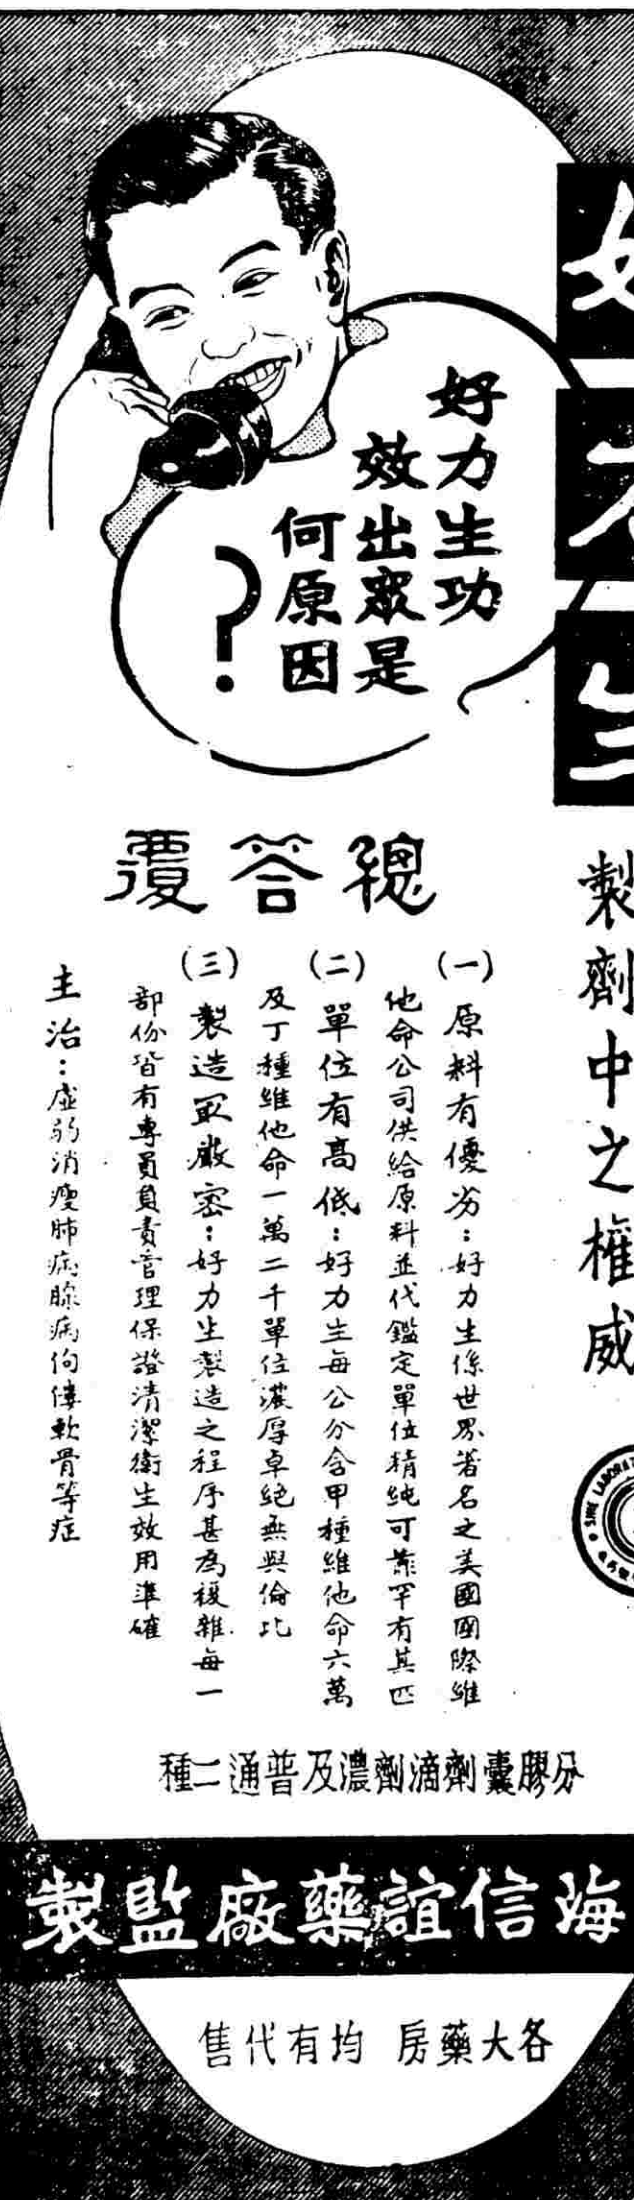 好力生功
效出眾是
何原因
?
製劑中之權威
SINE LABORAT
總答覆
(一) 原料有優劣：好力生係世界著名之美國國際維
他命公司供給原料並代鑑定單位精純可靠罕有其匹
(二) 單位有高低：好力生每公分含甲種維他命六萬
及丁種維他命一萬二千單位濃厚卓絕無與倫比
(三) 製造最嚴密：好力生製造之程序甚為複雜每一
部份皆有專員負責管理保證清潔衛生效用準確
主治：虛弱消瘦肺病腺病佝僂軟骨等症
分膠囊劑滴劑濃及普通二種
海信誼藥廠監製
各大藥房均有代售